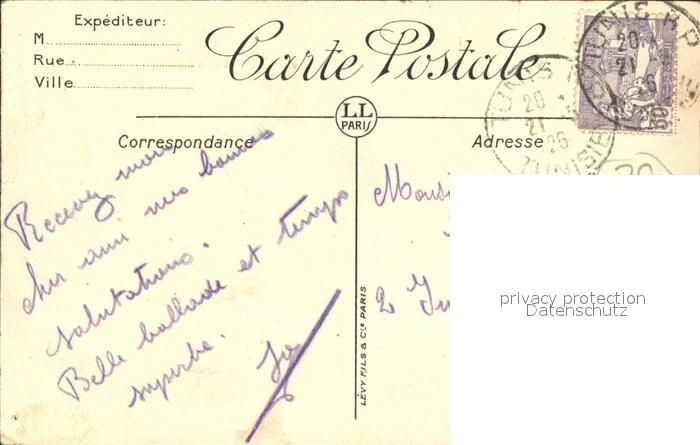 Expéditeur:
M
Rue
Ville
Carte Postale
LL
PARIS
Correspondance
Adresse
TUNIS R.P
20
21
26
TUNIS R.P
20
21
26
TUNISIE
Recevez mon
cher ami mes bonnes
salutations.
Belle ballade et temps
superbe.
LÉVY FILS & Cie PARIS
2
privacy protection
Datenschutz